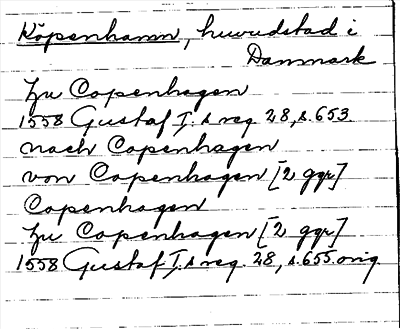 Köpenhamn, huvudstad i
Danmark
Zu Copenhagen
1558 Gustaf I:s reg. 28, s. 653.
nach Copenhagen
von Copenhagen [2 ggr]
Copenhagen
Zu Copenhagen [2 ggr]
1558 Gustaf I:s reg. 28, s. 655. orig.